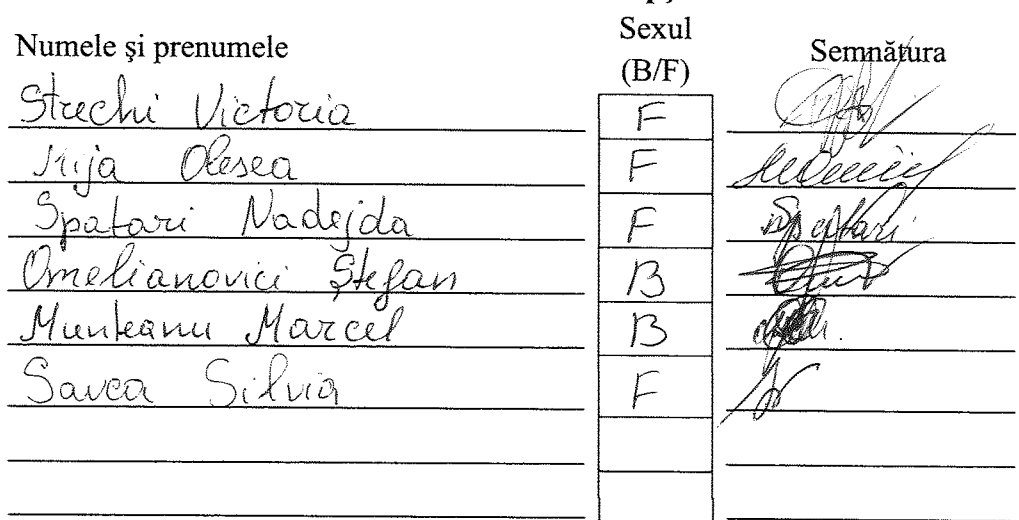 Numele şi prenumele Sexul (B/F) Semnătura
Strechi Victoria F
Olesea F
Spatari Nadejda F Spatari
Omelianovici Ştefan B
Munteanu Marcel B
Savca Silvia F